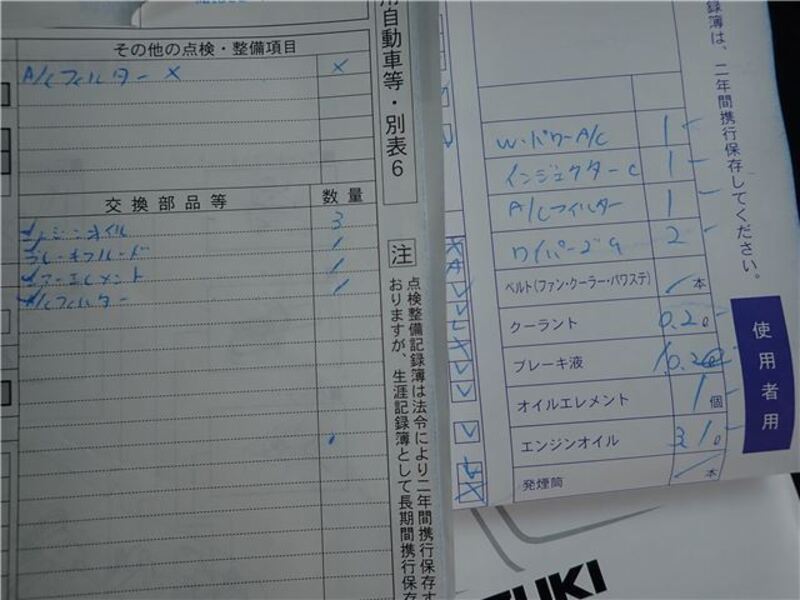 その他の点検・整備項目
A/Cフィルター × ×
交換部品等 数量
エンジンオイル 3
ブレーキフルード 1
エアーエレメント 1
A/Cフィルター 1
用自動車等・別表6
注
点検整備記録簿は法令により二年間携行保存す
おりますが、生涯記録簿として長期間携行保存
W・パワーA/C 1
インジェクターC 1
A/Cフィルター 1
ワイパーゴム 2
ベルト(ファン・クーラー・パワステ) 本
クーラント 0.2ℓ
ブレーキ液
オイルエレメント 1個
エンジンオイル 3.1ℓ
発煙筒 本
録簿は、二年間携行保存してください。
使用者用
ZUKI